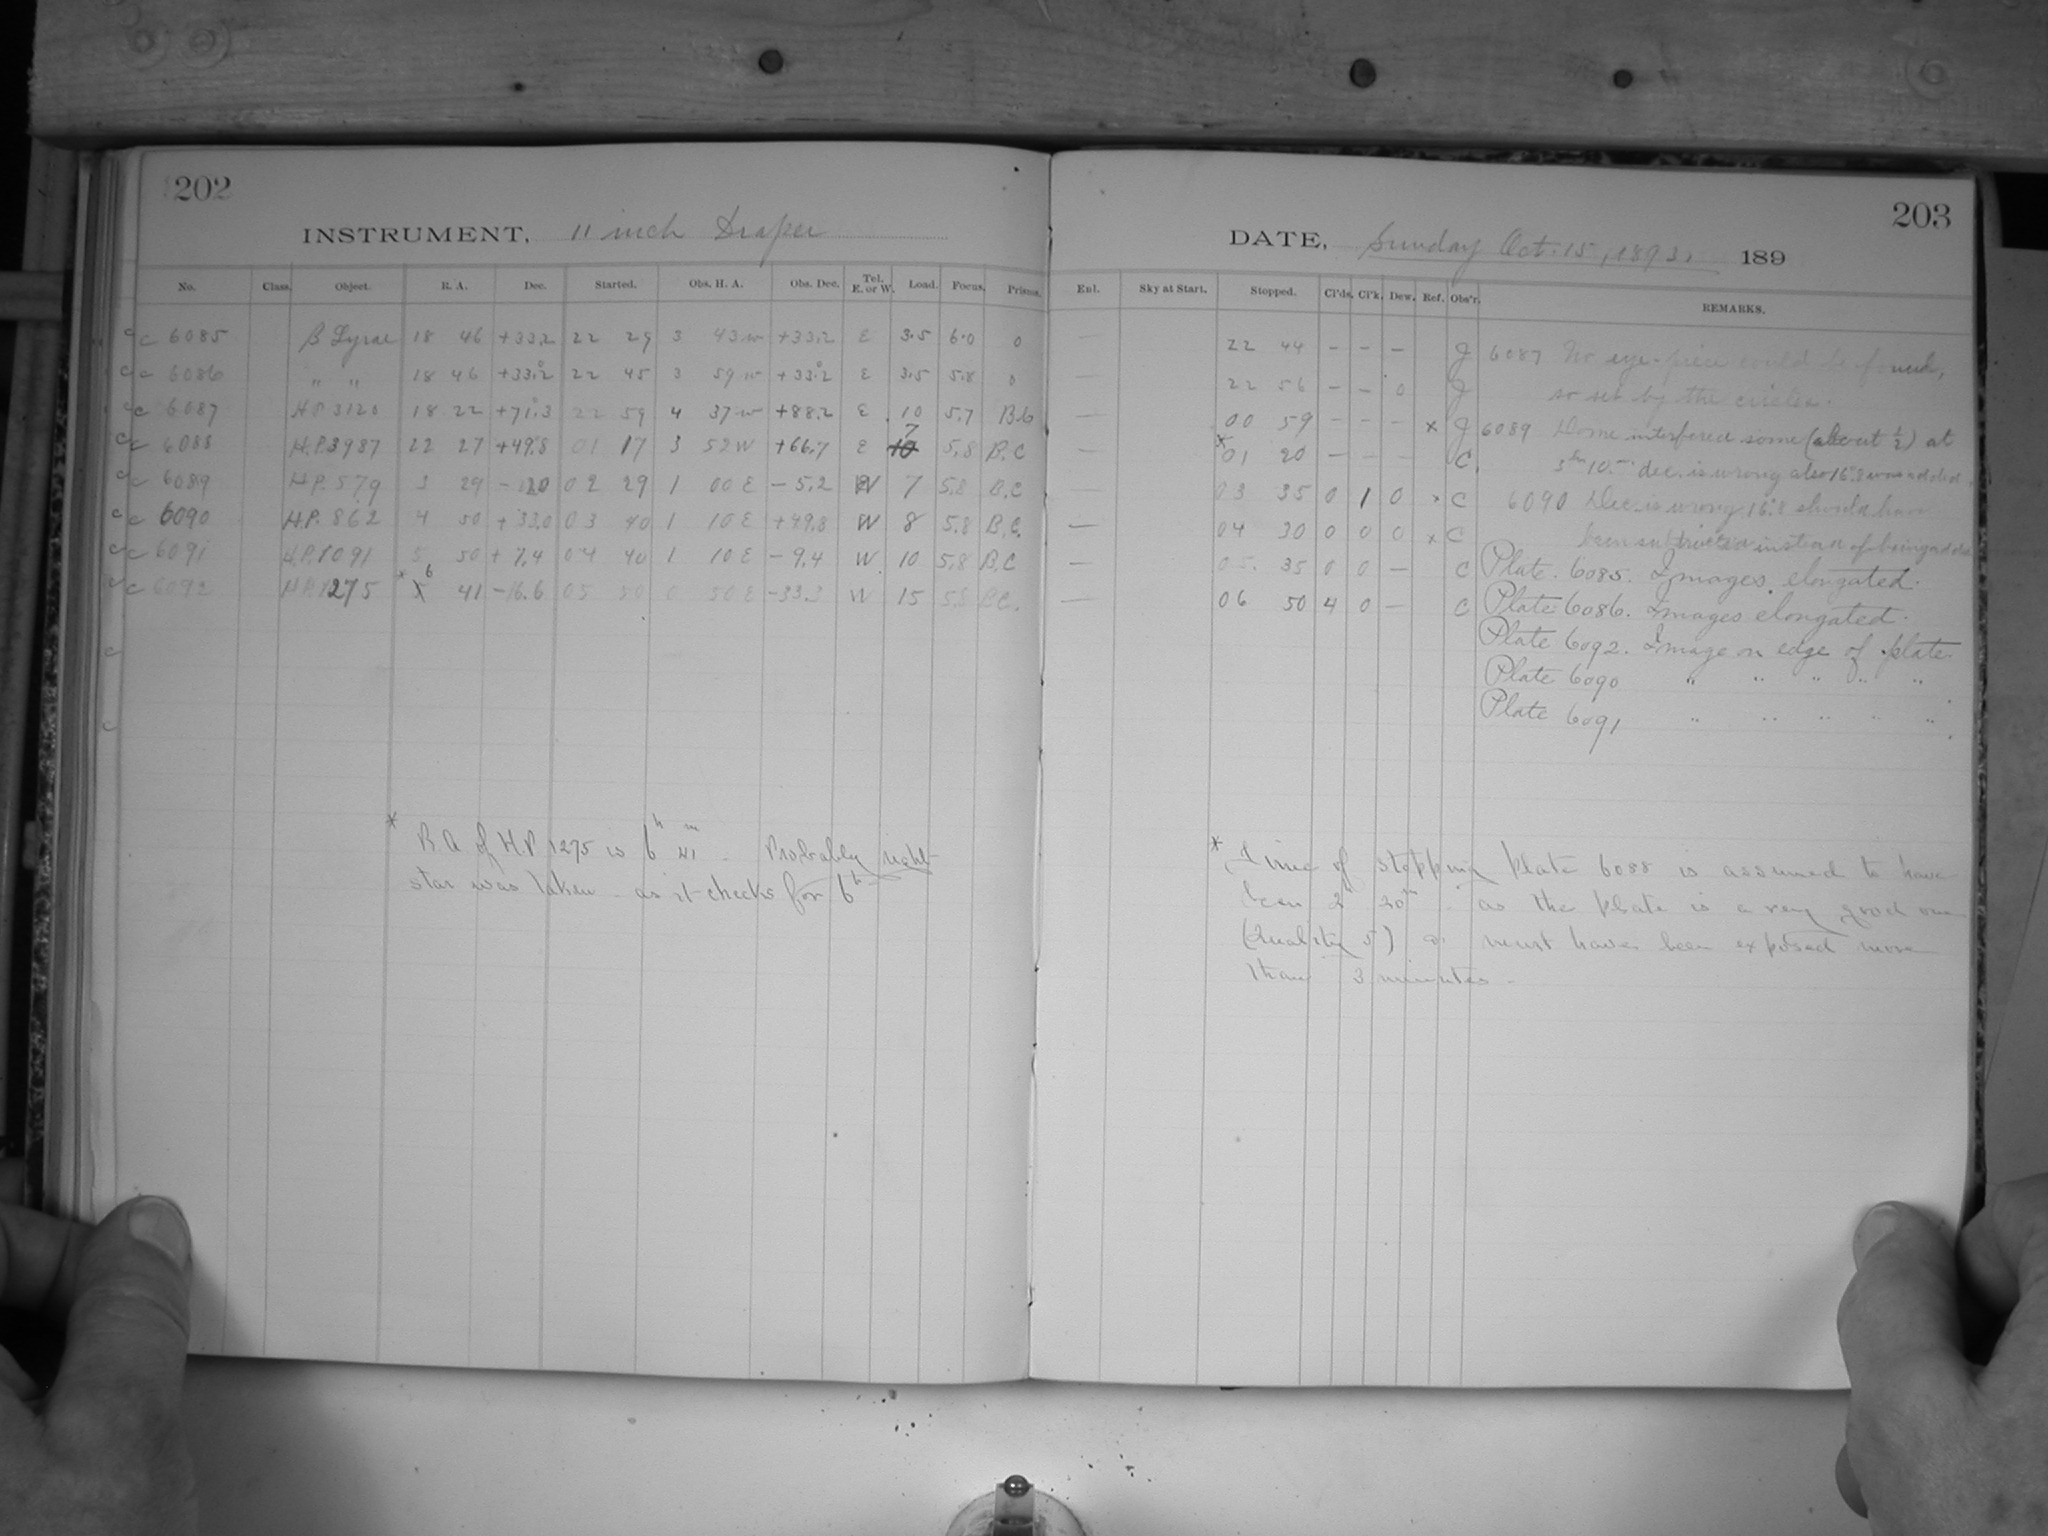 202
INSTRUMENT, 11 inch Draper
No. Class. Object. R. A. Dec. Started. Obs. H. A. Obs. Dec. Tel. E. or W. Load. Focus. Prisms.
c c 6085 β Lyrae 18 46 +33.2 22 29 3 43 w +33.2 E 3.5 6.0 0
c c 6086 " " 18 46 +33.2 22 45 3 59 w +33.2 E 3.5 5.8 0
c c 6087 H.P. 3120 18 22 +71.3 22 59 4 37 w +88.2 E 10 5.7 B.C
c c 6088 H.P. 3987 22 27 +49.8 01 17 3 52 W +66.7 E 10 7 5.8 B.C
c c 6089 H.P. 579 3 29 02 29 1 00 E -5.2 W 7 5.8 B.C
c c 6090 H.P. 862 4 50 +33.0 03 40 1 10 E +49.8 W 8 5.8 B.C.
c c 6091 H.P. 1091 5 50 +7.4 04 40 1 10 E -9.4 W 10 5.8 B.C
c c 6092 H.P. 1275 * 6 41 -16.6 05 50 0 50 E -33.3 W 15 5.8 B.C.
c
c
* R A of H.P. 1275 is 6h 41m. Probably right
star was taken - as it checks for 6h
203
DATE, Sunday Oct. 15, 1893. 189
Enl. Sky at Start. Stopped. Cl'ds. Cl'k. Dew. Ref. Obs'r. REMARKS.
— 22 44 - - - J 6087 No eye-piece could be found,
— 22 56 - - 0 J so set by the circles.
— 00 59 - - - x J 6089 Dome interfered some (about ½) at
* 01 20 - - - C. 3h 10m dec. is wrong also 16°.8 was added.
03 35 0 1 0 x C 6090 Dec. is wrong 16°.8 should have
— 04 30 0 0 0 x C been subtracted instead of being added
— 05 35 0 0 — C Plate 6085. Images elongated.
— 06 50 4 0 — C Plate 6086. Images elongated.
Plate 6092. Image on edge of plate
Plate 6090 " " " " "
Plate 6091 " " " " "
* Time of stopping plate 6088 is assumed to have
been 2h 20m - as the plate is a very good one
(Quality 5) & must have been exposed more
than 3 minutes -